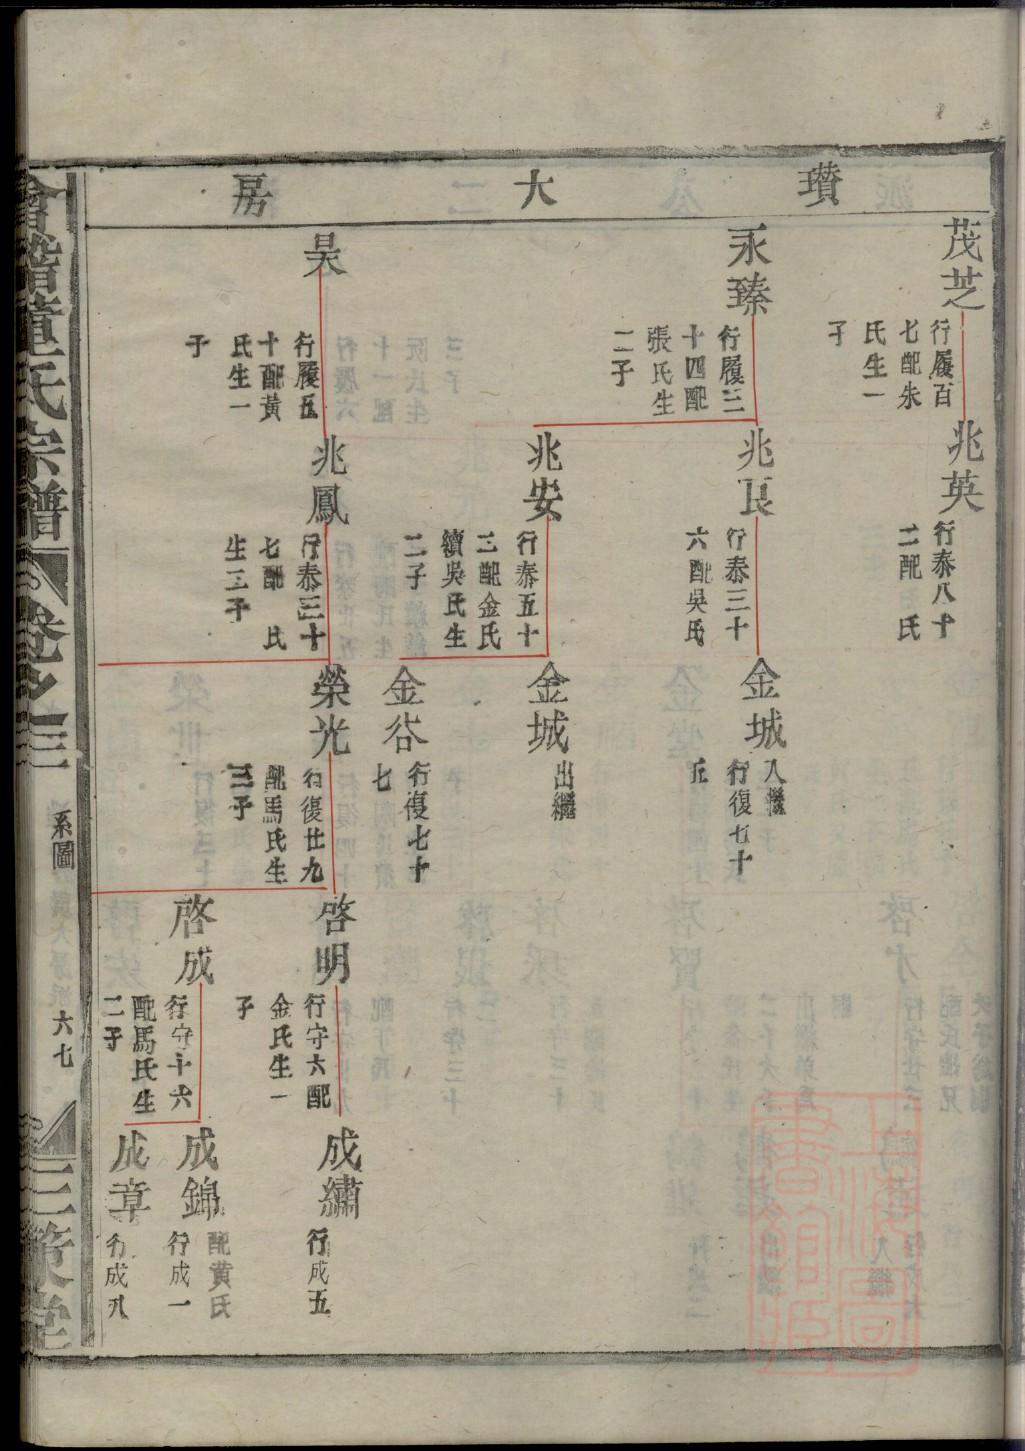 瓚大房
茂芝
行履百
七配朱
氏生一
子
永臻
行履三
十四配
張氏生
二子
昊
行履五
十配黃
氏生一
子
兆英
行泰八十
二配 氏
兆良
行泰三十
六配吳氏
兆安
行泰五十
三配金氏
續吳氏生
二子
兆鳳
行泰三十
七配 氏
生三子
金城
入繼
行復七十
五
金城
出繼
金谷
行復七十
七
榮光
行復廿九
配馬氏生
三子
啓明
行守六配
金氏生一
子
啓成
行守十六
配馬氏生
二子
成繡
行成五
成錦
配黃氏
行成一
成章
行成九
會稽董氏宗譜
卷之三
系圖
六七
三策堂
上海圖書館藏